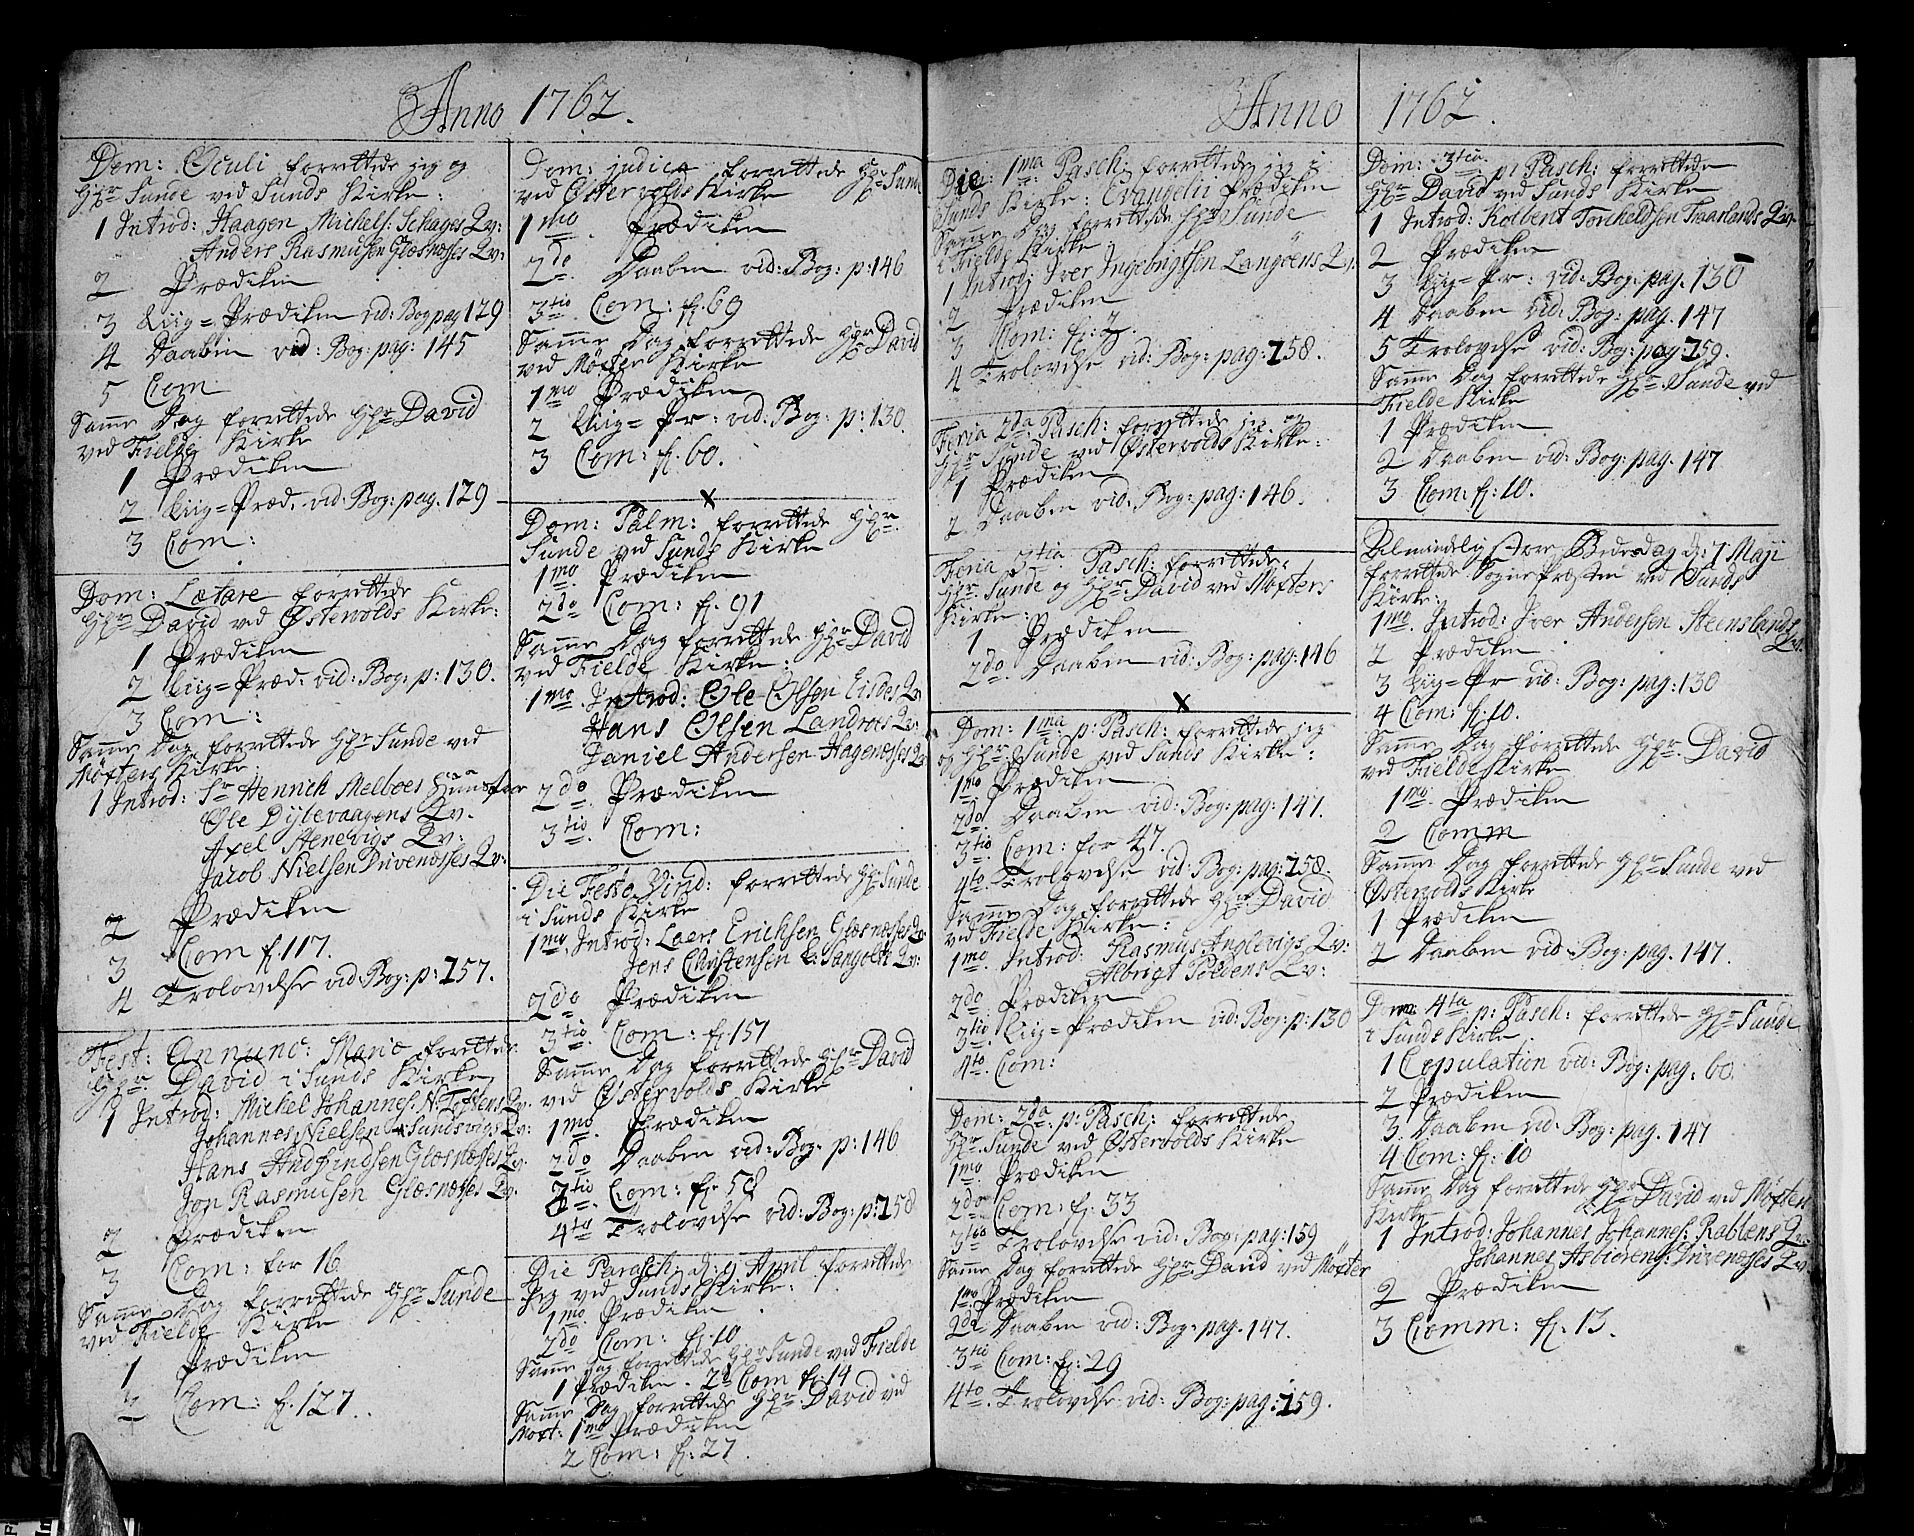 Anno 1762.
Dom: Oculi forrettede jeg og
Hr Sunde ved Sunds Kirke:
1 Introd: Haagen Michels: Schages Qv:
Anders Rasmusen Glesnesses Qv:
2 Prædiken
3 Liig=Prædiken vid: Bog pag 129
4 Daaben vid: Bog: pag: 145
5 Com
Samme Dag forrettede Hr David
ved Fielde Kirke
1 Prædiken
2 Liig=Præd. vid: Bog: pag. 129
3 Com:
Dom: Lætare forrettede
Hr David ved Østervolds Kirke:
1 Prædiken
2 Liig=Præd. vid: Bog: p: 130.
3 Com:
Samme Dag forrettede Hr Sunde ved
Møster Kirke
1 Introd: Sr Henrich Melboes
Ole Dylevaagens Qv.
Axel Stenevigs Qv:
Jacob Nielsen Drivenesses Qv:
2 Prædiken
3 Com f. 117.
4 Trolovelse vid Bog: p: 157.
Fest: Annunc: Mariæ forrettede
Hr David i Sunds Kirke
1 Introd: Michel Johannes: N. Toftens Qv.
Johannes Nielsen Sundsvigs Qv:
Hans Andfindsen Glesnesses Qv:
Jon Rasmusen Glesnesses Qv:
2 Prædiken
3 Com: for 16
Samme Dag forrettede Hr Sunde
ved Fielde Kirke
1 Prædiken
2 Com: f. 127.
Dom: judica forrettede Hr Sunde
ved Østervolds Kirke
1mo Prædiken
2do Daaben vid: Bog: p: 146
3tio Com: f. 69
Samme Dag forrettede Hr David
ved Møster Kirke
1mo Prædiken
2 Liig=Pr: vid: Bog: p: 130.
3 Com: f. 60.
x
Dom: Palm: forrettede Hr
Sunde ved Sunds Kirke
1mo Prædiken
2do Com: f. 91
Samme Dag forrettede Hr David
ved Fielde Kirke:
1mo Introd: Ole Olsen Eides Qv
Hans Olsen Landroes Qv:
Daniel Andersen Hagenesses Qv
2do Prædiken
3tio Com:
Die Festo Virid: forrettede Hr Sunde
i Sunds Kirke
1mo Introd: Laers Erichsen Glesnesses Qv
Jens Christensen Qv:
2do Prædiken
3tio Com: f. 157
Samme Dag forrettede Hr David
ved Østervolds Kirke
1mo Prædiken
2do Daaben vid: Bog: p: 146
3tio Com: f. 58
4to Trolovelse vid: Bog: p: 158
Die Parasch: d: 9 April forrettede
Jeg ved Sunds Kirke:
1mo Prædiken
2do Com: f. 10
Samme Dag forrettede Hr Sunde ved Fielde
1 Prædiken. 2d Com f. 14
Samme Dag forrettede Hr David vid
Møst: 1mo Prædiken
2 Com: f. 27.
Anno 1762.
Die: 1ma Pasch: forrettede jeg i
Sunds Kirke: Evangelii Prædiken
Samme Dag forrettede Hr Sunde
i Fielde Kirke
1 Introd: Iver Ingebrigtsen Langøens Qv:
2 Prædiken
3 Com: f: 7.
4 Trolovelse vid: Bog: pag: 158.
Feria 2da: Pasch: forrettede jeg og
Hr Sunde ved Østervolds Kirke:
1 Prædiken
2. Daaben vid: Bog: pag: 146.
Feria 3tia Pasch: forrettede
Hr Sunde og Hr David ved Møsters
Kirke:
1 Prædiken
2do. Daaben vid: Bog: pag: 146
x
Dom: 1ma p: Pasch: forrettede jeg
og Hr Sunde ved Sunds Kirke:
1mo Prædiken
2do. Daaben vid: Bog: pag: 147.
3tio Com: for 47.
4to Trolovelse vid: Bog: pag: 158.
Samme Dag forrettede Hr David
ved Fielde Kirke:
1mo. Introd: Rasmus Anglevigs Qv:
Albrigt Poldens Qv:
2do Prædiken
3tio Liig=Prædiken vid: Bog: p: 130
4to. Com:
Dom: 2da p: Pasch: forrettede
Hr. Sunde ved Østervolds Kirke
1mo Prædiken
2do Com: f: 33
3tio Trolovelse vid: Bog: pag: 159
Samme Dag forrettede Hr David ved Møster
1mo Prædiken
2do Daaben vid: Bog: pag. 147.
3tio Com: f: 29
4to. Trolovelse vid: Bog: pag: 159.
Dom: 3tia p: Pasch: forrettede
Hr David ved Sunds Kirke
1 Introd: Kolbent Torkeldsen Traarlands Qv
2 Prædiken
3 Liig=Pr: vid: Bog: pag. 130
4 Daaben vid: Bog: pag. 147
5 Trolovelse vid: Bog: pag 159.
Samme Dag forrettede Hr. Sunde ved
Fielde Kirke
1 Prædiken
2 Daaben vid: Bog: pag. 147
3 Com: f: 10.
Almindelig store Bededag d: 7 Maji
forrettede Sogne Præsten ved Sunds
Kirke:
1mo. Introd: Iver Andersen Steenslands
Qv.
2 Prædiken
3 Liig=Pr vid: Bog: pag: 130
4 Com: f. 10.
Samme Dag forrettede Hr David
ved Fielde Kirke
1mo. Prædiken
2 Comm
Samme Dag forrettede Hr Sunde ved
Østervolds Kirke
1 Prædiken
2 Daaben vid: Bog: pag. 147.
Dom: 4ta p: Pasch: forrettede Hr Sunde
i Sunds Kirke
1 Copulation vid: Bog: pag: 60.
2 Prædiken
3. Daaben vid: Bog: pag. 147
4 Com: f: 10
Samme Dag forrettede Hr David ved Møster
Kirke
1 Introd: Johannes Johannes: Rablens Qv:
Johannes Asbiöreng: Drivenesses Qv
2 Prædiken
3 Comm: f. 13.